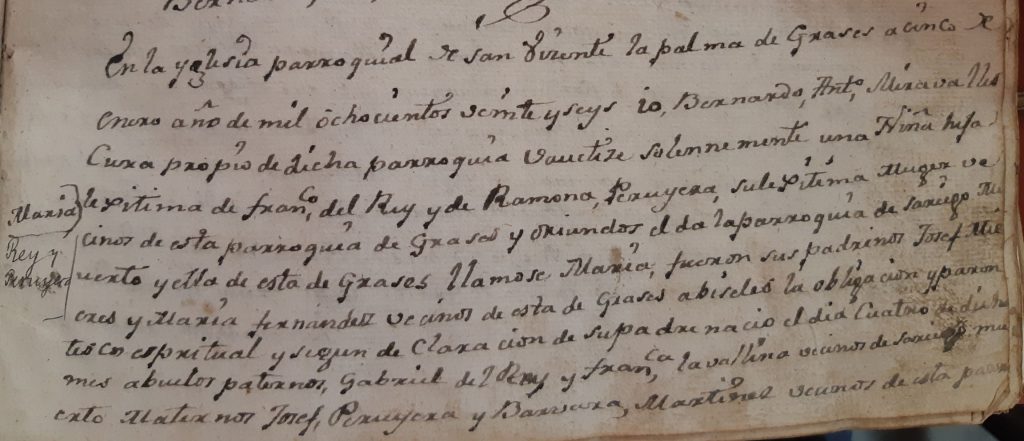 En la yglesia parroquial de san Vizente la palma de Grases a cinco de
enero año de mil ochocientos veinte y seys io, Bernardo, Anto, Miravalles
Cura propio de dicha parroquia vautize solennemente una Niña hija
Maria
lexitima de franco, del Rey y de Ramona, Peruyera, su lexitima muger ve
Rey y
Peruyera
cinos de esta parroquia de Grases y oriundos el da la parroquia de sariego Mu
uerto y ella de esta de Grases llamose Maria, fueron sus padrinos Josef Mie
eres y Maria fernandez vecinos de esta de Grases abiseles la obligacion y paren
tesco espritual y segun de Claracion de su padre nacio el dia Cuatro de dicho
mes abuelos paternos, Gabriel del Rey y franca, la vallina vecinos de sariego, mu
erto Maternos Josef, Peruyera y Barvara, Martinez vecinos de esta parro